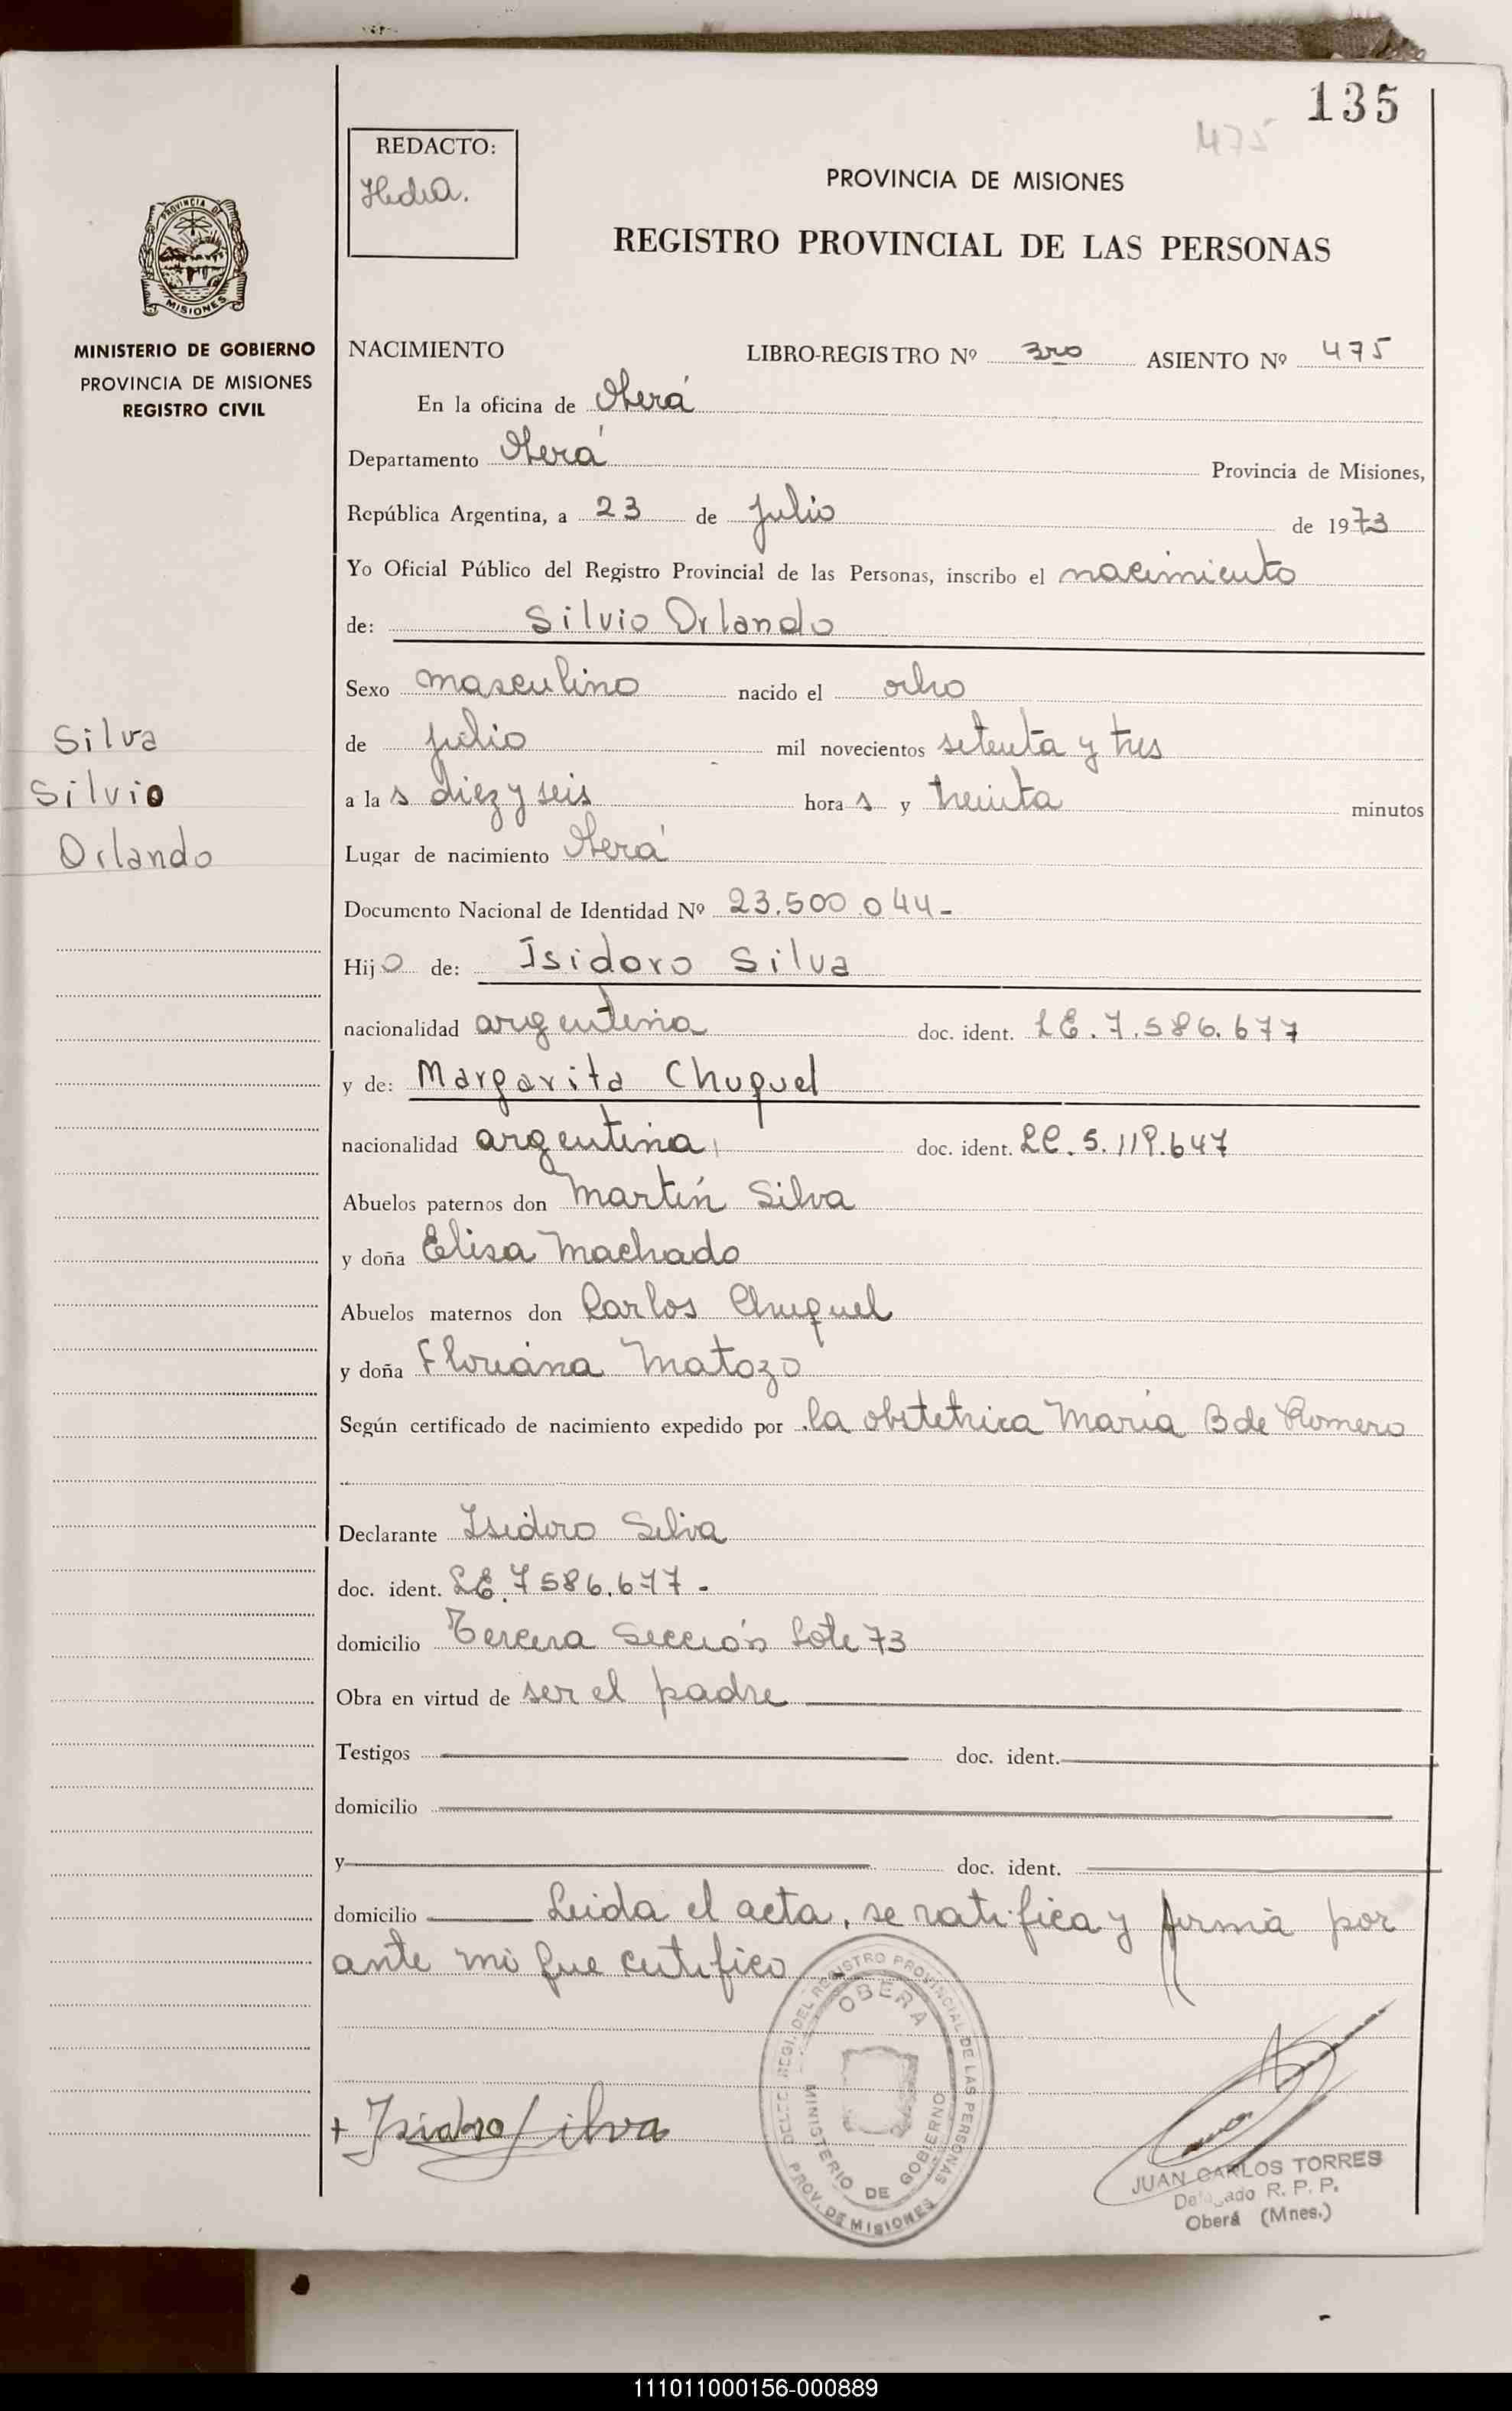 135
475
REDACTO:
PROVINCIA DE MISIONES
REGISTRO PROVINCIAL DE LAS PERSONAS
PROVINCIA DE
MISIONES
MINISTERIO DE GOBIERNO
PROVINCIA DE MISIONES
REGISTRO CIVIL
NACIMIENTO LIBRO-REGISTRO Nº 3ro ASIENTO Nº 475
En la oficina de Oberá
Departamento Oberá Provincia de Misiones,
República Argentina, a 23 de julio de 1973
Yo Oficial Público del Registro Provincial de las Personas, inscribo el nacimiento
de: Silvio Orlando
Sexo masculino nacido el ocho
Silva
de julio mil novecientos setenta y tres
Silvio
a la s diez y seis hora s y treinta minutos
Orlando
Lugar de nacimiento Oberá
Documento Nacional de Identidad Nº 23.500.044-
Hijo de: Isidoro Silva
nacionalidad argentina doc. ident. LE. 7.586.677
y de: Margarita Chuquel
nacionalidad argentina doc. ident. LC. 5.119.647
Abuelos paternos don Martín Silva
y doña Elisa Machado
Abuelos maternos don Carlos Chuquel
y doña Floriana Matozo
Según certificado de nacimiento expedido por la obstetrica María B de Romero
Declarante Isidoro Silva
doc. ident. LE. 7586.677-
domicilio Tercera Sección Lote 73
Obra en virtud de ser el padre
Testigos doc. ident.
domicilio
y doc. ident.
domicilio Leida el acta, se ratifica y firma por
ante mi que certifico
DELEG. REGI. DEL REGISTRO PROVINCIAL DE LAS PERSONAS
OBERA
MINISTERIO DE GOBIERNO
PROV. DE MISIONES
+ Isidro Silva
JUAN CARLOS TORRES
Delegado R. P. P.
Oberá (Mnes.)
111011000156-000889